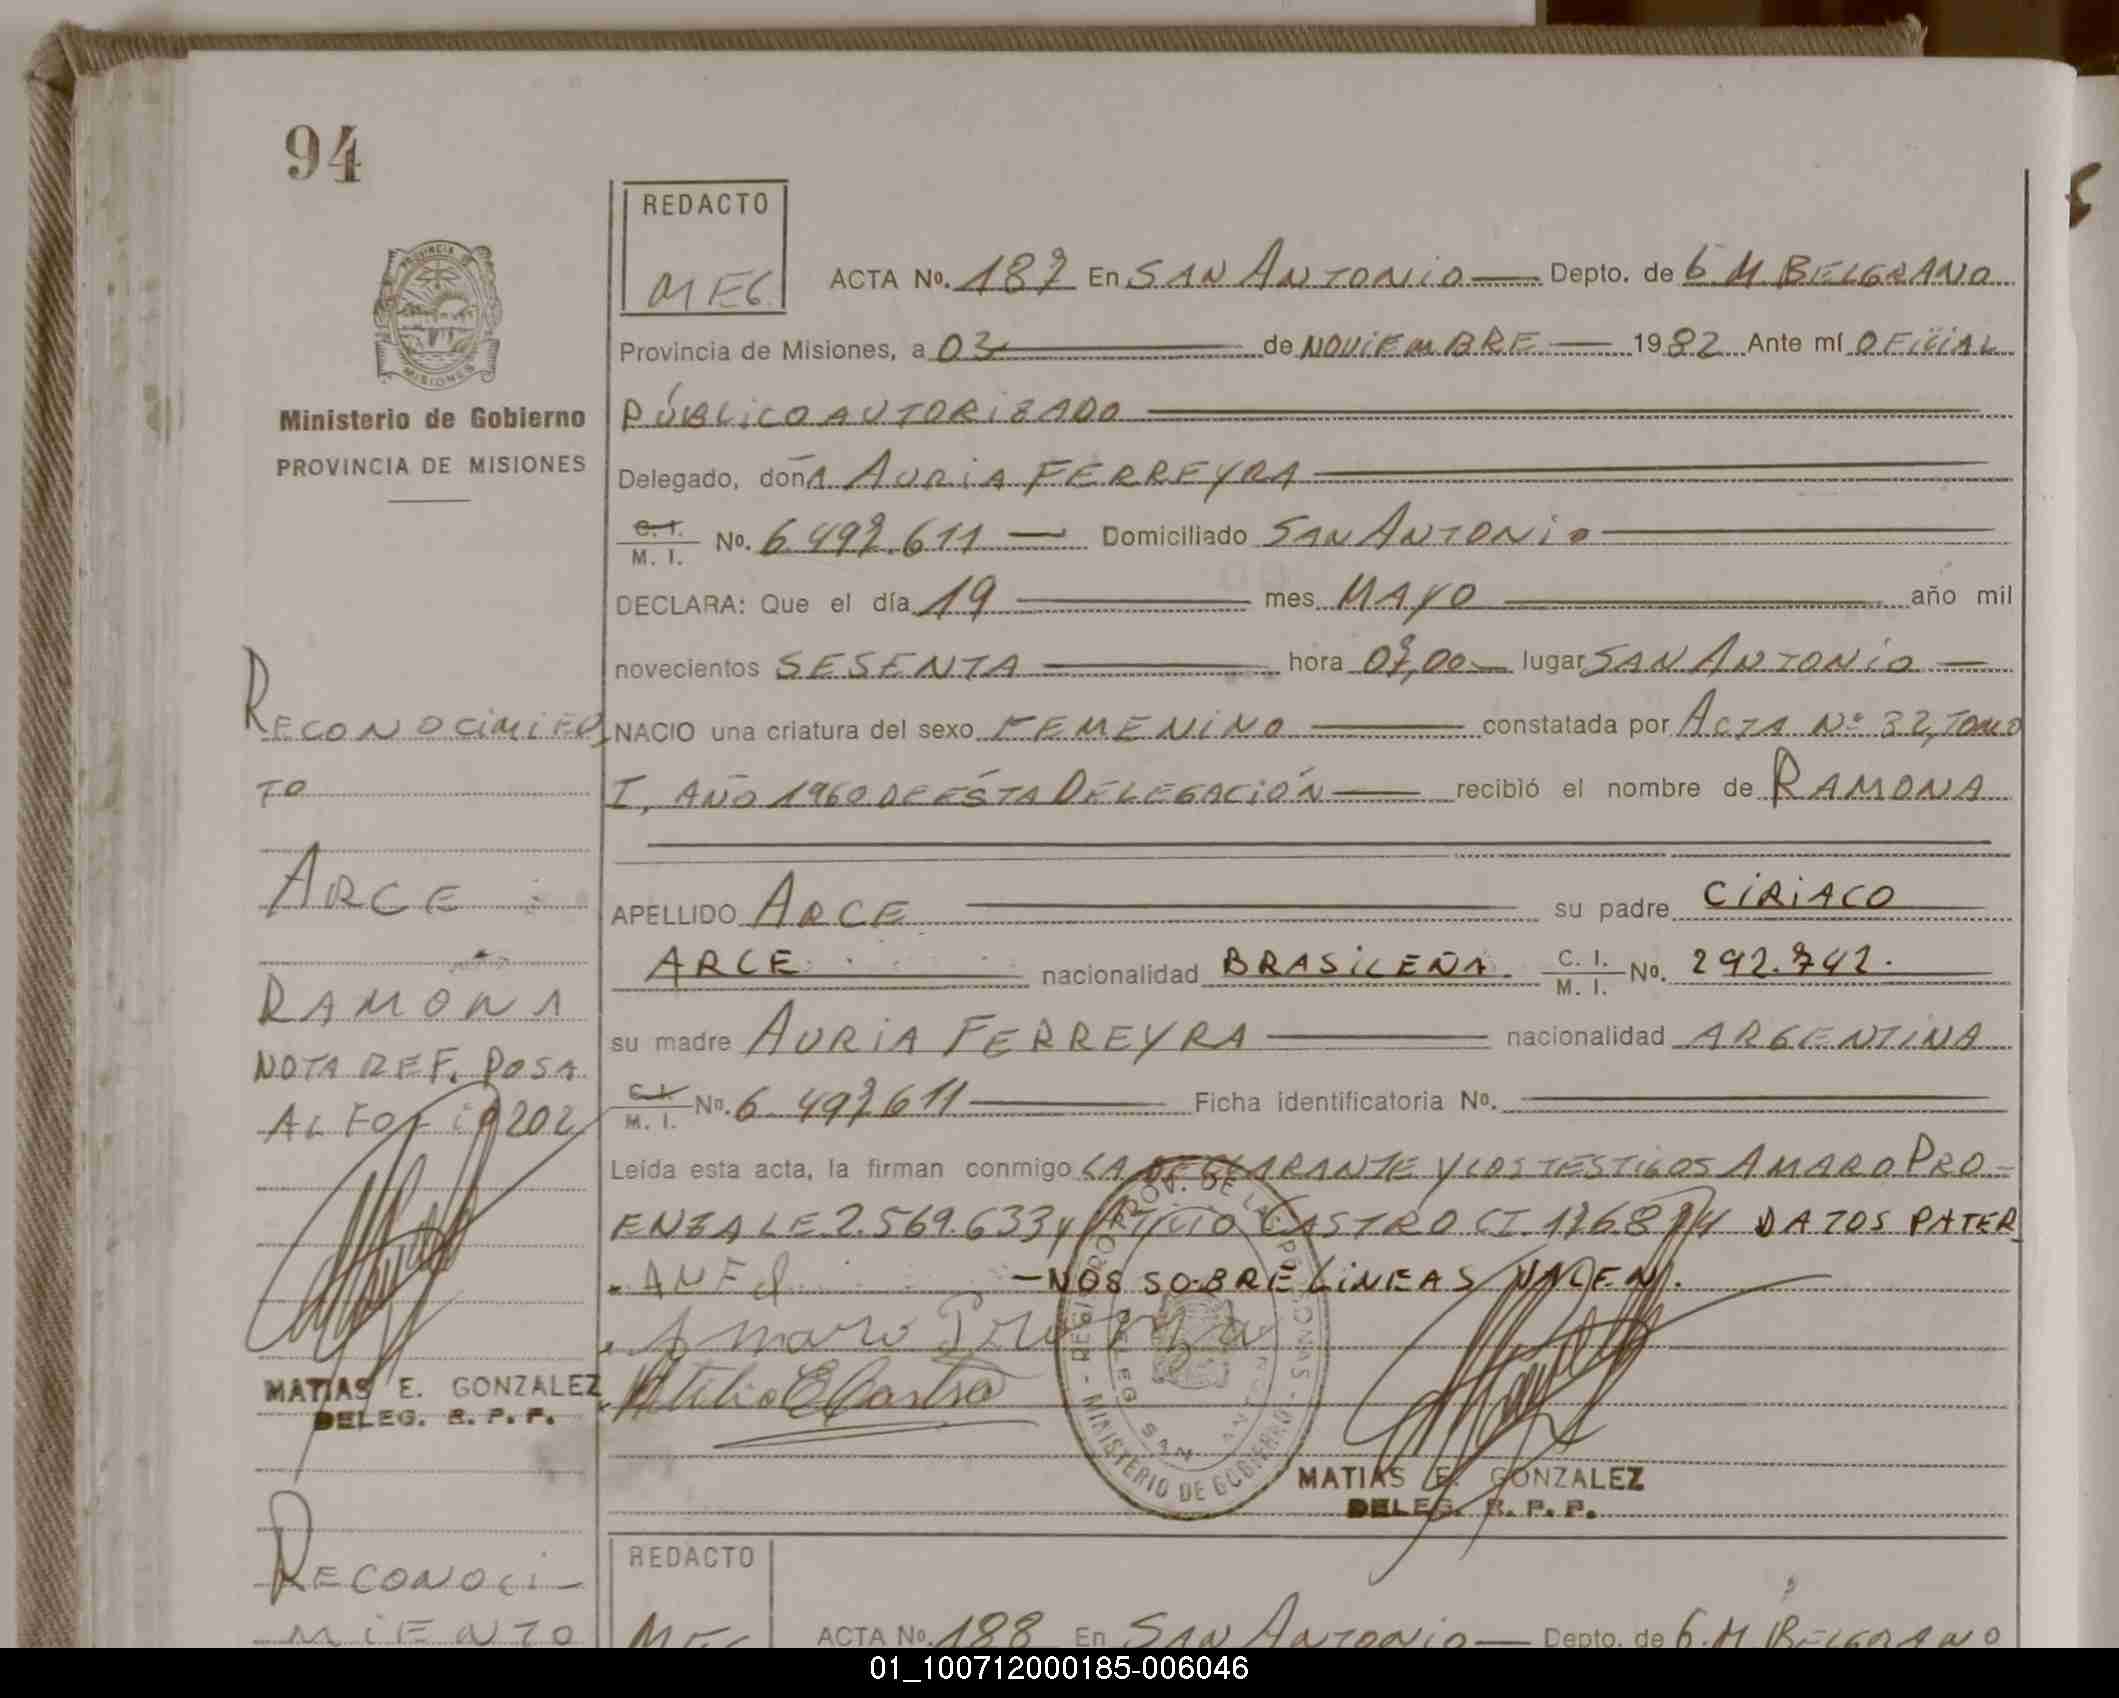 94
REDACTO
MEG.
ACTA No. 187 En SAN ANTONIO Depto. de G. M. BELGRANO
PROVINCIA DE
MISIONES
Provincia de Misiones, a 03 de NOVIEMBRE 1982 Ante mí OFICIAL
Ministerio de Gobierno
PÚBLICO AUTORIZADO
PROVINCIA DE MISIONES
Delegado, doñA AURIA FERREYRA
C. I.
M. I. No. 6.497.611 Domiciliado SAN ANTONIO
DECLARA: Que el día 19 mes MAYO año mil
novecientos SESENTA hora 07,00 lugar SAN ANTONIO
RECONOCIMIEN
NACIO una criatura del sexo FEMENINO constatada por ACTA Nº 32, TOMO
TO
I, AÑO 1960 DE ÉSTA DELEGACIÓN recibió el nombre de RAMONA
ARCE
APELLIDO ARCE su padre CIRIACO
ARCE nacionalidad BRASILEÑA C. I. M. I. No. 292.742.
RAMONA
su madre AURIA FERREYRA nacionalidad ARGENTINA
NOTA REF. PASA
C. I.
M. I. No. 6 497611 Ficha identificatoria No.
AL FOLIO 202
Leída esta acta, la firman conmigo LA DECLARANTE Y LOS TESTIGOS AMARO PRO=
ENZA LE 2.569.633 y ATILIO CASTRO CI. 176874 DATOS PATER_
-NOS SOBRE LINEAS VALEN.
Amaro Proenza
Atilio E Castro
REGISTRO PROV. DE LAS PERSONAS - MINISTERIO DE GOBIERNO -
DELEG. SAN ANTONIO
MATIAS E. GONZALEZ
DELEG. R. P. P.
MATIAS E. GONZALEZ
DELEG. R. P. P.
RECONOCI-
MIENTO
REDACTO
MEG
ACTA No. 188 En SAN ANTONIO Depto. de G. M. BELGRANO
01_100712000185-006046